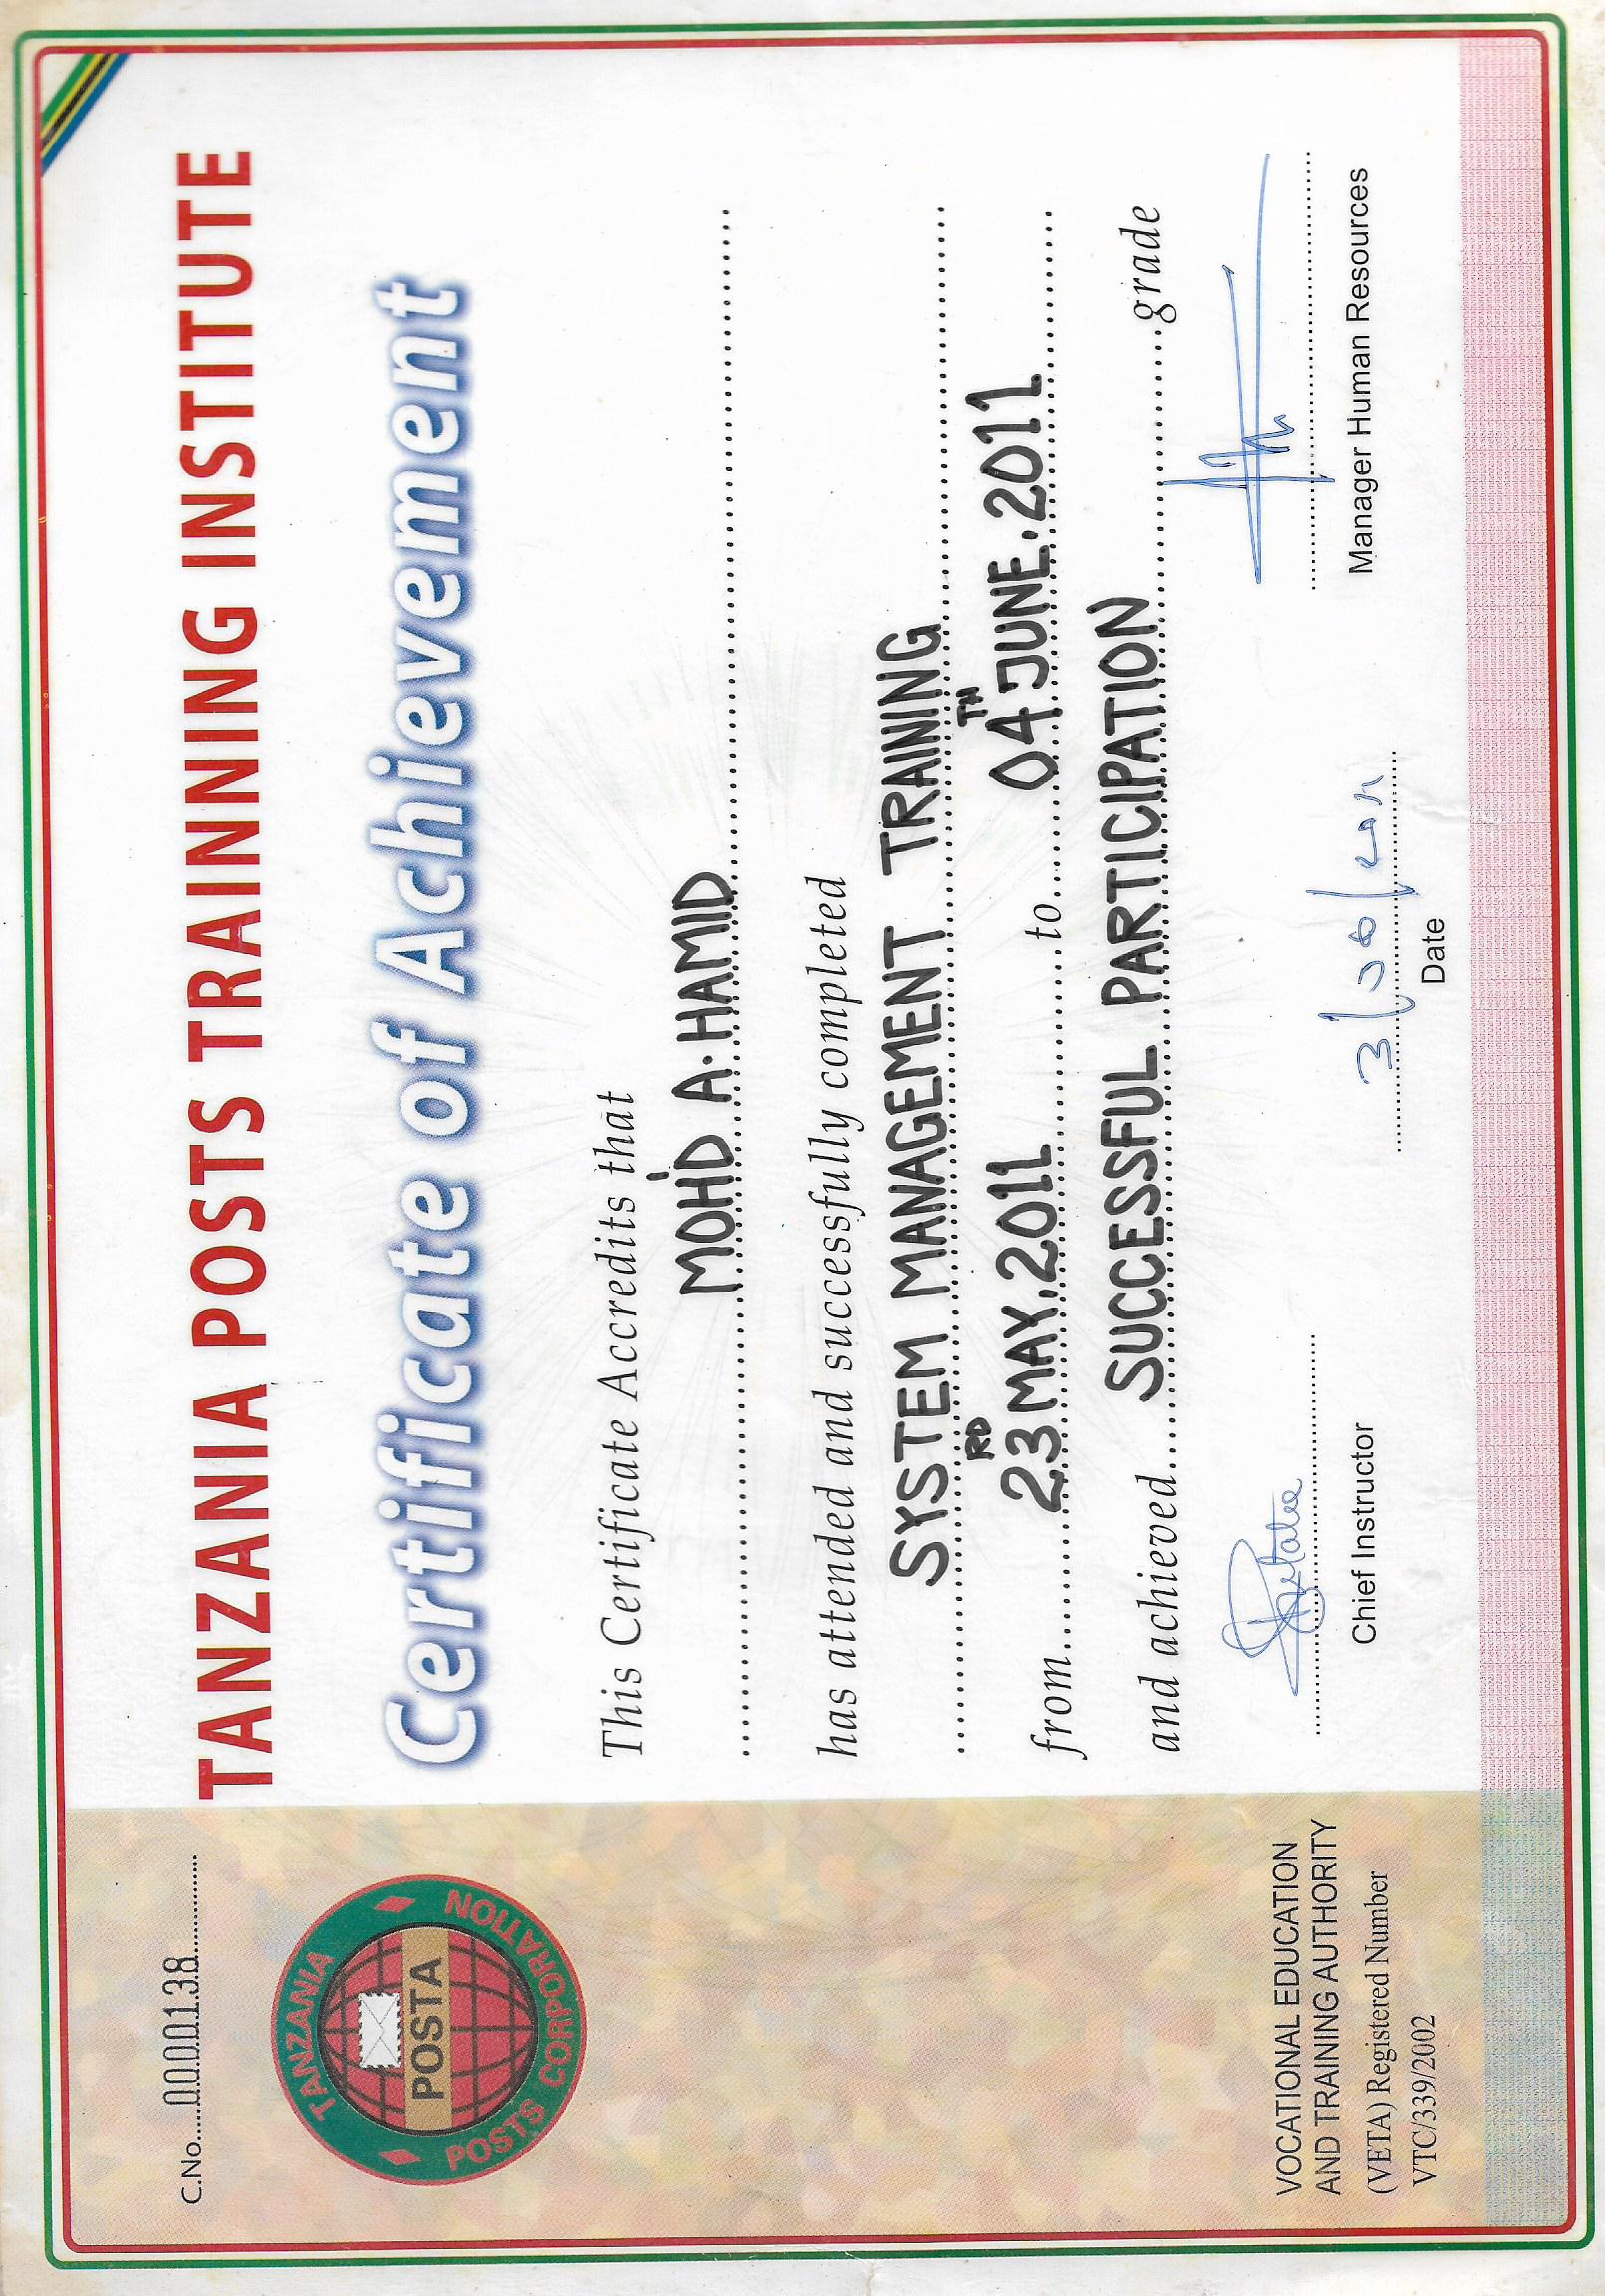 C.No.....0000138..........
TANZANIA POSTS CORPORATION
POSTA
VOCATIONAL EDUCATION
AND TRAINING AUTHORITY
(VETA) Registered Number
VTC/339/2002
TANZANIA POSTS TRAINNING INSTITUTE
Certificate of Achievement
This Certificate Accredits that
MOH'D A. HAMID
has attended and successfully completed
SYSTEM MANAGEMENT TRAINING
from 23RD MAY, 2011 to 04TH JUNE. 2011
and achieved SUCCESSFUL PARTICIPATION grade
Chief Instructor
Date
Manager Human Resources